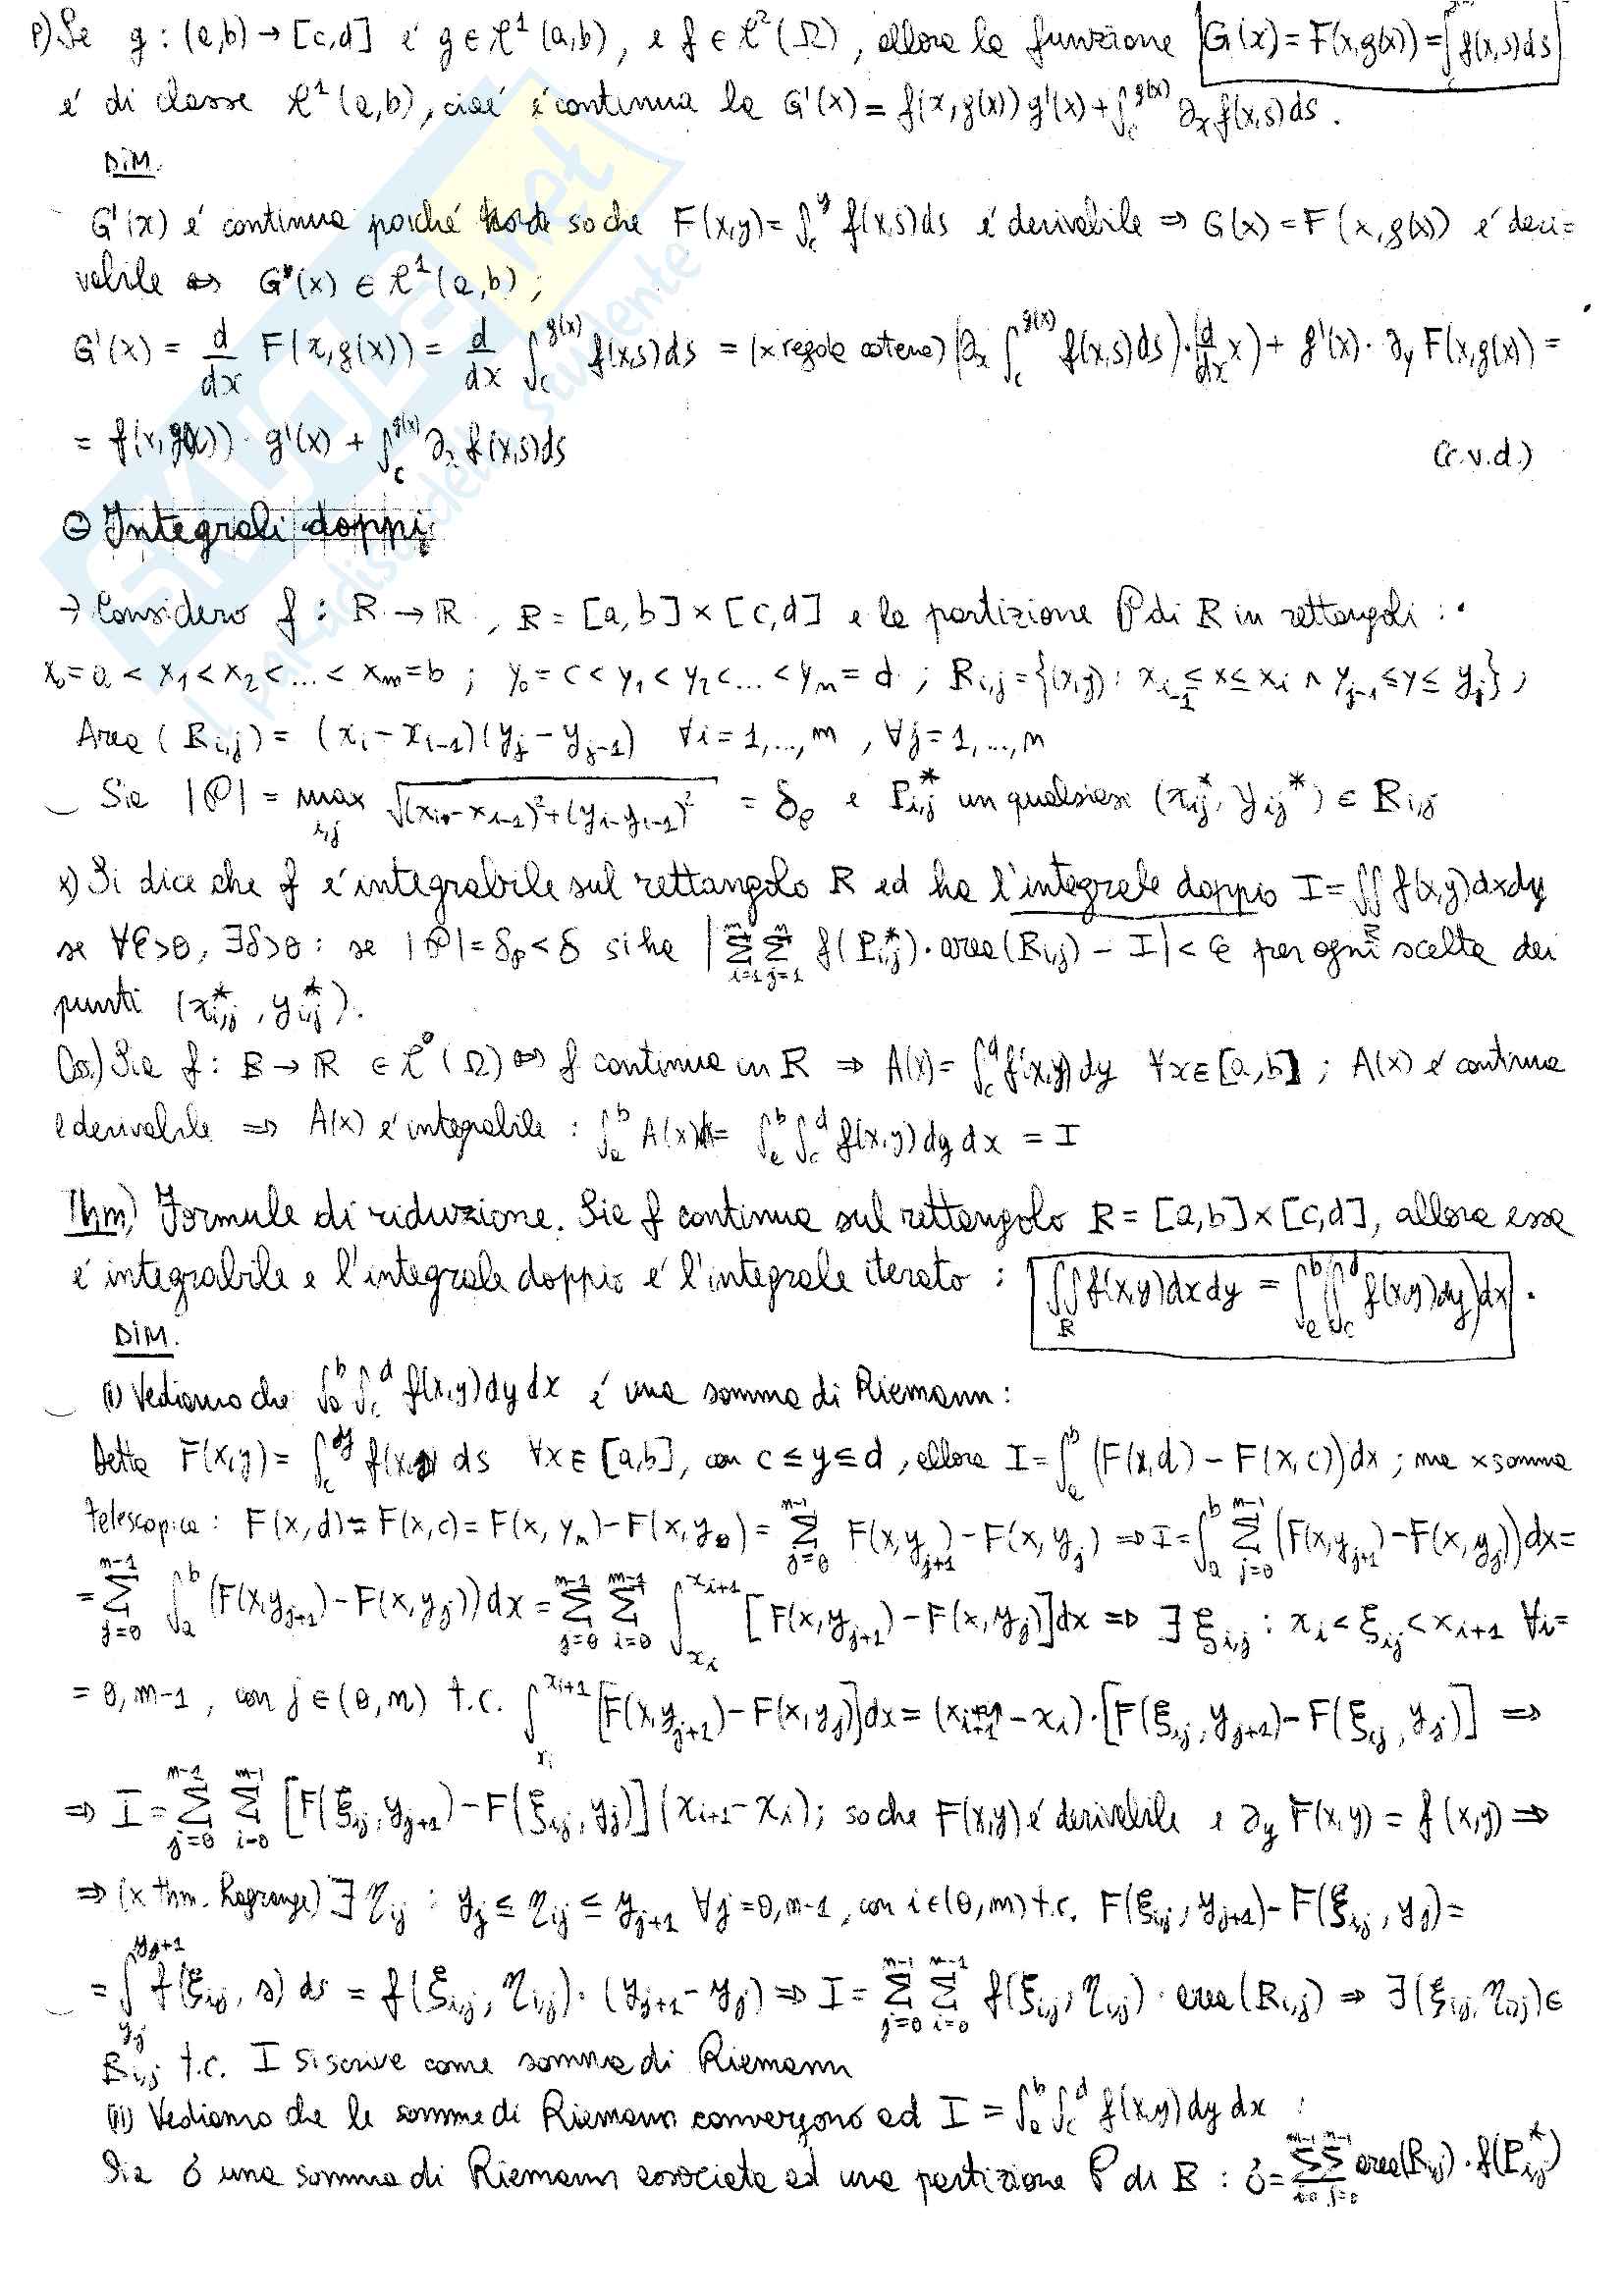 P) Se g : (a,b) → [c,d] é g ∈ C¹(a,b), e f ∈ C²(Ω), allora la funzione G(x) = F(x,g(x)) = ∫ f(x,s)ds
é di classe C¹(a,b), cioé é continua la G'(x) = f(x,g(x)) g'(x) + ∫_c^{g(x)} ∂ₓ f(x,s) ds .
DIM.
G'(x) é continua poiché so che F(x,y) = ∫_c^y f(x,s)ds é derivabile ⇒ G(x) = F(x,g(x)) é deri=
vabile ⇔ G(x) ∈ C¹(a,b) ;
G'(x) = d/dx F(x,g(x)) = d/dx ∫_c^{g(x)} f(x,s)ds = (x regola catena) (∂ₓ ∫_c^{g(x)} f(x,s)ds)·(d/dx x) + g'(x)· ∂_y F(x,g(x)) =
= f(x,g(x))· g'(x) + ∫_c^{g(x)} ∂ₓ f(x,s)ds (c.v.d.)
Integrali doppi
→ Considero f : R → ℝ , R = [a,b] × [c,d] e la partizione P di R in rettangoli :
x₀ = a < x₁ < x₂ < ... < x_m = b ; y₀ = c < y₁ < y₂ < ... < y_n = d ; R_{i,j} = {(x,y) : x_{i-1} ≤ x ≤ x_i ∧ y_{j-1} ≤ y ≤ y_j} ,
Area (R_{i,j}) = (x_i - x_{i-1})(y_j - y_{j-1}) ∀i = 1,..., m , ∀j = 1,..., n
Sia |P| = max_{i,j} √((x_i - x_{i-1})² + (y_i - y_{i-1})²) = δ_P e P*_{i,j} un qualsiasi (x*_{ij}, y*_{ij}) ∈ R_{i,j}
x) Si dice che f é integrabile sul rettangolo R ed ha l'integrale doppio I = ∬_R f(x,y)dxdy
se ∀ε>0, ∃δ>0 : se |P| = δ_P < δ si ha |∑_{i=1}^m ∑_{j=1}^n f(P*_{i,j})· area(R_{i,j}) - I| < ε per ogni scelta dei
punti (x*_{i,j} , y*_{i,j}).
Oss.) Sia f : R → ℝ ∈ C⁰(Ω) ⇔ f continua in R ⇒ A(x) = ∫_c^d f(x,y) dy ∀x∈[a,b] ; A(x) é continua
e derivabile ⇒ A(x) é integrabile : ∫_a^b A(x)dx = ∫_a^b ∫_c^d f(x,y) dy dx = I
Thm) Formule di riduzione. Sia f continua sul rettangolo R = [a,b]×[c,d], allora essa
é integrabile e l'integrale doppio é l'integrale iterato : ∬_R f(x,y)dxdy = ∫_a^b (∫_c^d f(x,y)dy)dx .
DIM.
(i) Vediamo che ∫_a^b ∫_c^d f(x,y) dy dx é una somma di Riemann :
Detta F(x,y) = ∫_c^y f(x,s) ds ∀x∈[a,b], con c ≤ y ≤ d , allora I = ∫_a^b (F(x,d) - F(x,c))dx ; ma x somma
telescopica : F(x,d) - F(x,c) = F(x, y_n) - F(x, y₀) = ∑_{j=0}^{n-1} F(x,y_{j+1}) - F(x, y_j) ⇒ I = ∫_a^b ∑_{j=0}^{n-1} (F(x,y_{j+1}) - F(x,y_j))dx =
= ∑_{j=0}^{n-1} ∫_a^b (F(x,y_{j+1}) - F(x,y_j))dx = ∑_{j=0}^{n-1} ∑_{i=0}^{m-1} ∫_{x_i}^{x_{i+1}} [F(x,y_{j+1}) - F(x,y_j)]dx ⇒ ∃ ξ_{i,j} : x_i < ξ_{ij} < x_{i+1} ∀i=
= 0, m-1 , con j ∈ (0,n) t.c. ∫_{x_i}^{x_{i+1}} [F(x,y_{j+1}) - F(x,y_j)]dx = (x_{i+1} - x_i)·[F(ξ_{ij}, y_{j+1}) - F(ξ_{ij}, y_j)] ⇒
⇒ I = ∑_{j=0}^{n-1} ∑_{i=0}^{m-1} [F(ξ_{ij}, y_{j+1}) - F(ξ_{ij}, y_j)](x_{i+1} - x_i) ; so che F(x,y) é derivabile e ∂_y F(x,y) = f(x,y) ⇒
⇒ (x thm. Lagrange) ∃ η_{ij} : y_j ≤ η_{ij} ≤ y_{j+1} ∀j = 0, n-1 , con i∈(0,m) t.c. F(ξ_{ij}, y_{j+1}) - F(ξ_{ij}, y_j) =
= ∫_{y_j}^{y_{j+1}} f(ξ_{ij}, s) ds = f(ξ_{ij}, η_{ij})·(y_{j+1} - y_j) ⇒ I = ∑_{j=0}^{n-1} ∑_{i=0}^{m-1} f(ξ_{ij}, η_{ij}) · area(R_{i,j}) ⇒ ∃(ξ_{ij}, η_{ij}) ∈
R_{i,j} t.c. I si scrive come somma di Riemann
(ii) Vediamo che le somme di Riemann convergono ad I = ∫_a^b ∫_c^d f(x,y) dy dx :
Sia σ una somma di Riemann associata ad una partizione P di R : σ = ∑_{i=0}^{m-1} ∑_{j=0}^{n-1} area(R_{ij}) · f(P*_{i,j})